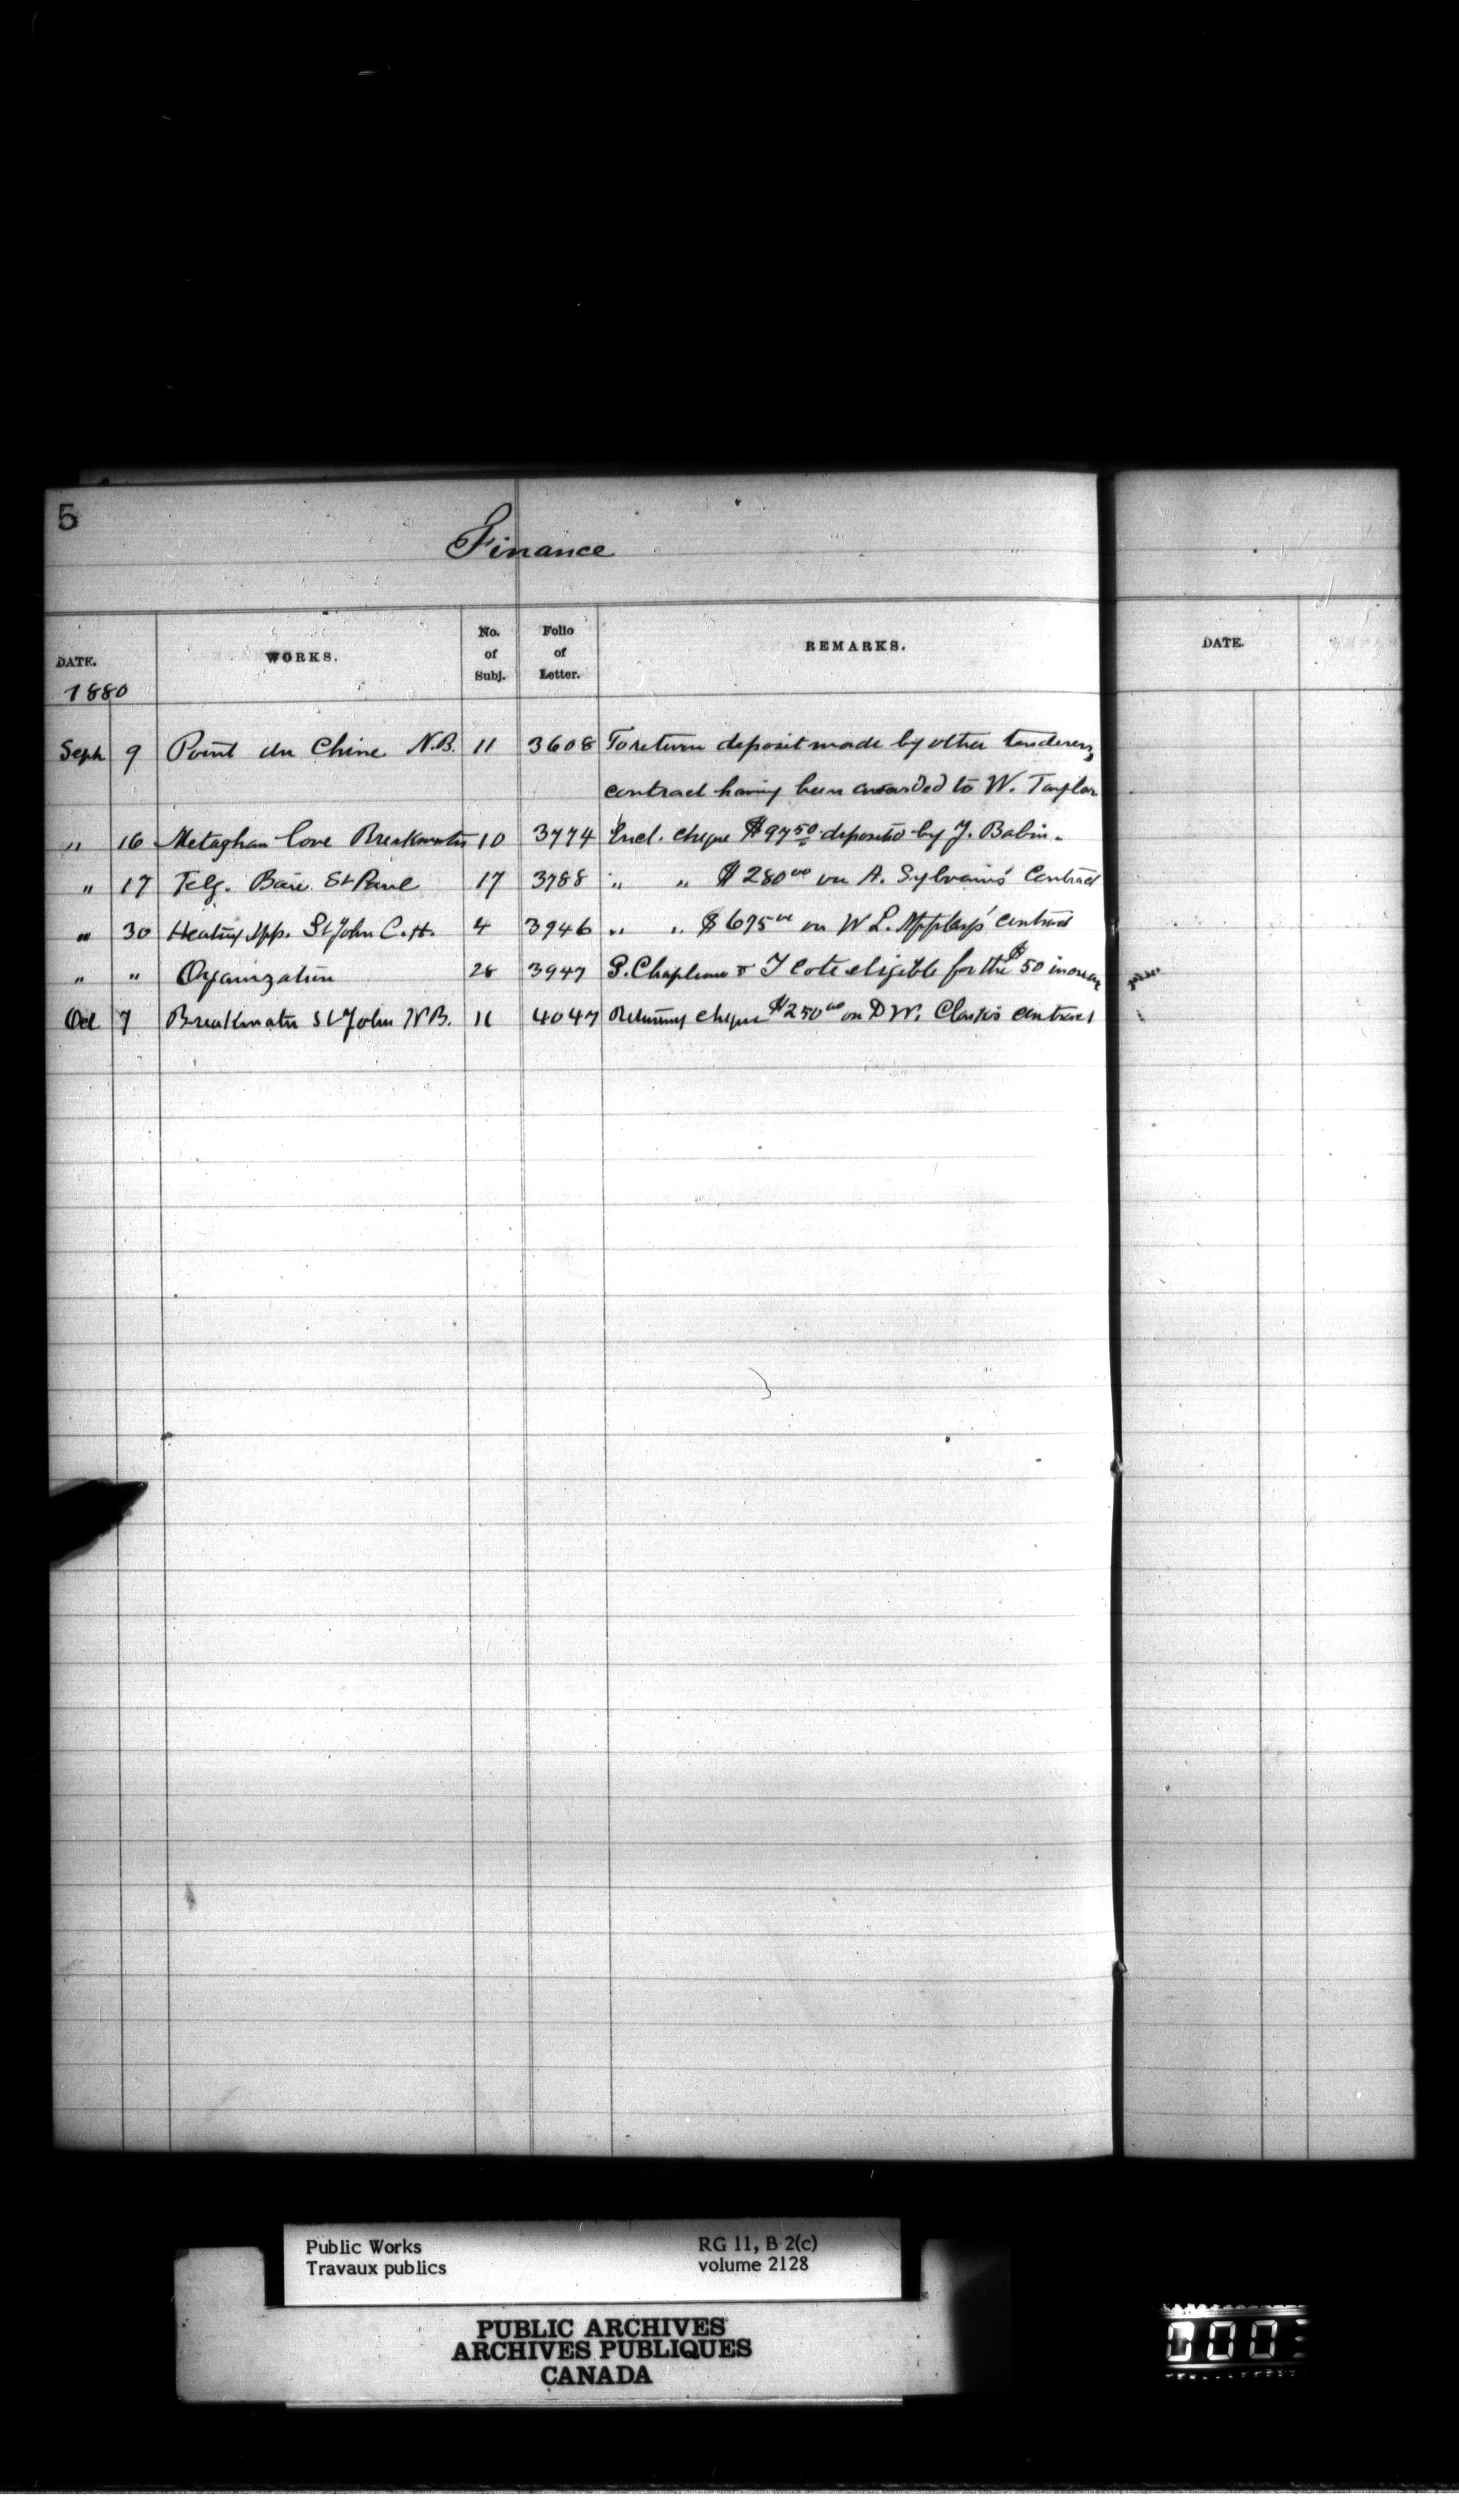 5
Finance
DATE. WORKS. No. of Subj. Folio of Letter. REMARKS. DATE.
1880
Sept 9 Point du Chine N.B. 11 3608 To return deposit made by other tenderers,
contract having been awarded to W. Taylor
" 16 Metaghan Cove Breakwater 10 3774 Encl. cheque $97 50 deposited by J. Babin.
" 17 Telg. Baie St Paul 17 3788 " " $280 00 on A. Sylvain's Contract
" 30 Heating App. St John C.H. 4 3946 " " $675 00 on W L. Contract
" " Organization 28 3947 & T Cote eligible for the $50 increase
Oct 7 Breakwater St John N.B. 11 4047 Returning cheque $250 00 on D W. Clark's contract
Public Works RG 11, B 2(c)
Travaux publics volume 2128
PUBLIC ARCHIVES
ARCHIVES PUBLIQUES
CANADA